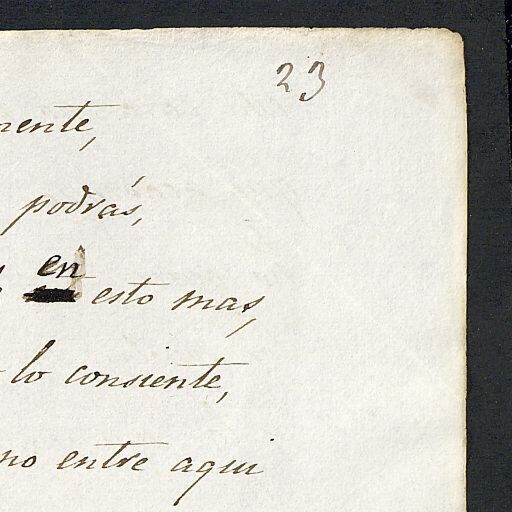 23
nente,
podrás,
en
esto mas,
lo consiente,
no entre aqui